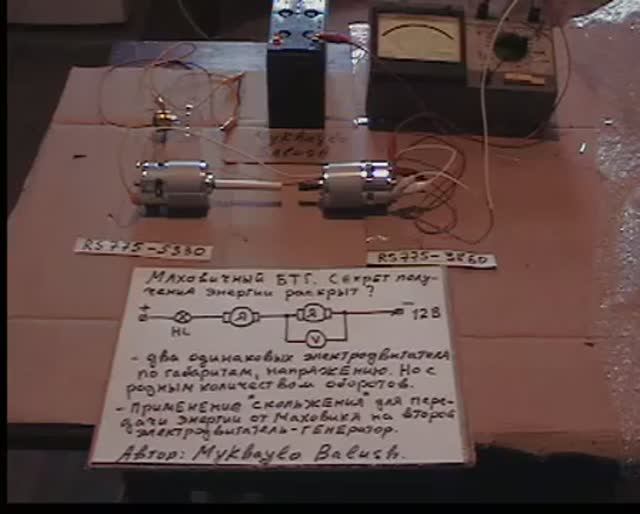 Mykhaylo
Balush
RS775-5330
RS775-3860
Маховичный БТГ. Секрет полу-
чения энергии раскрыт?
+ HL Я Я V - 12В
- два одинаковых электродвигателя
по габаритам, напряжению. Но с
родным количеством оборотов.
- Применение "скольжения" для пере-
дачи энергии от маховика на второй
электродвигатель-генератор.
Автор: Mykhaylo Balush.